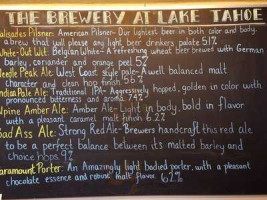 THE BREWERY AT LAKE TAHOE
Palisades Pilsner: American Pilsner- Our lightest beer in both color and body;
a brew that will please any light beer drinkers palate 5.1%
White-Out Wit: Belgian White- A refreshing wheat beer brewed with German
barley, coriander and orange peel 5%
Needle Peak Ale West Coast style pale- A well balanced malt
character and clean hop finish 5.6%
India Pale Ale: Traditional IPA- Aggressively hopped, golden in color with
pronounced bitterness and aroma 7.4%
Alpine Amber Ale: Amber Ale- Light in body, bold in flavor
with a pleasant caramel malt finish 6.2%
Bad Ass Ale: Strong Red Ale- Brewers handcraft this red ale
to be a perfect balance between its malted barley and
choice hops 9.2
Paramount Porter: An Amazingly light bodied porter, with a pleasant
chocolate essence and malt flavor 6.2%